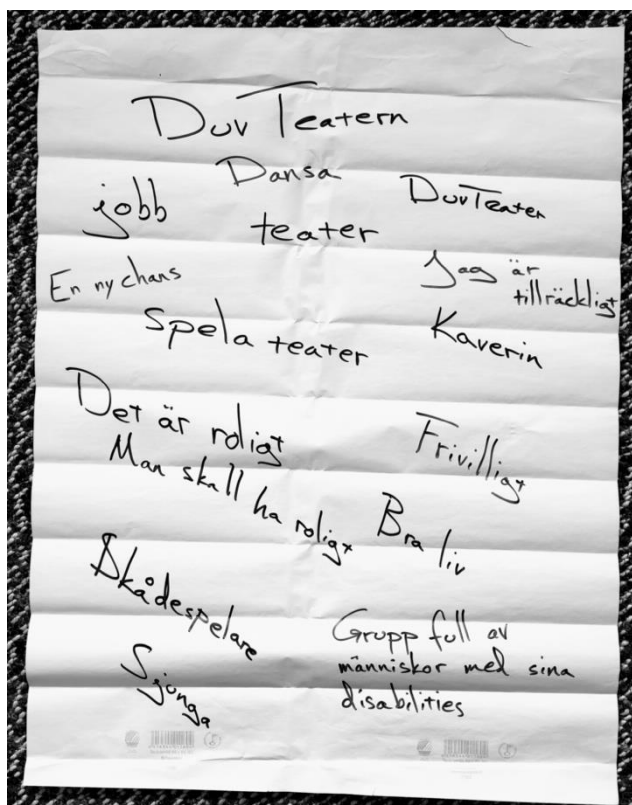 Duv Teatern
Dansa
jobb
DuvTeater
teater
En ny chans
Jag är
tillräckligt
Spela teater
Kaverin
Det är roligt
Frivilligt
Man skall ha roligt
Bra liv
Skådespelare
Sjunga
Grupp full av
människor med sina
disabilities